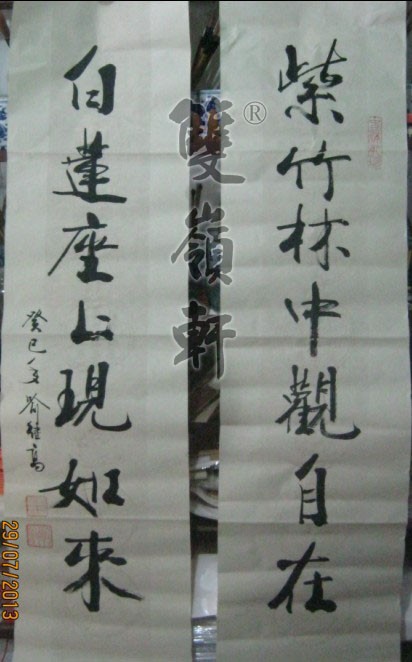 紫竹林中觀自在
白蓮座上現如來
癸巳
雙嶺軒®
29/07/2013